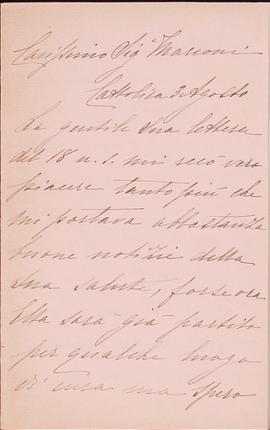 Carissimo Sigr Marconi
Cattolica 3 Agosto
La gentile Sua lettera
del 18 u. s. mi recò vero
piacere tanto più che
mi portava abbastanza
buone notizie della
Sua salute, forse ora
Ella sarà già partito
per qualche luogo
di cura ma spero